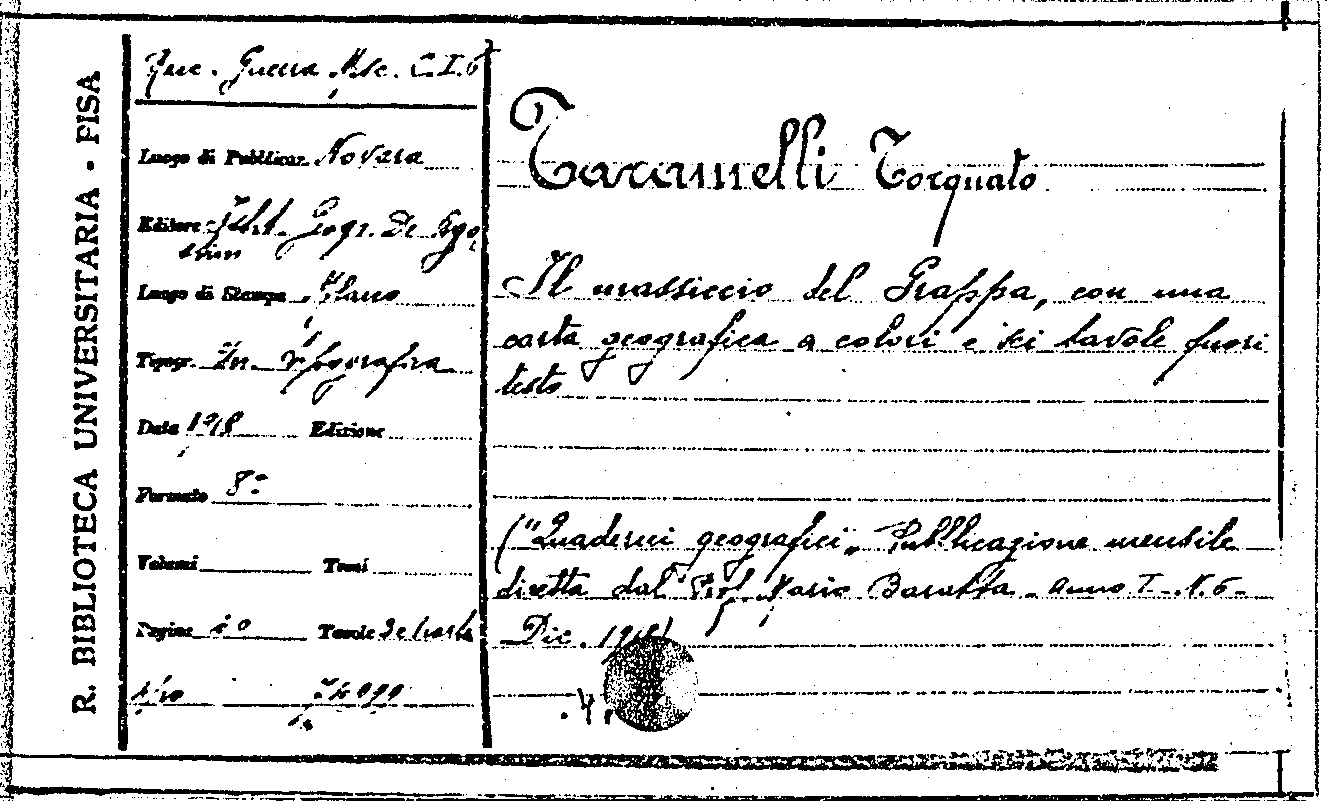 R. BIBLIOTECA UNIVERSITARIA - PISA
Guerra Misc. C.I.6
Luogo di Pubblicaz. Novara
Editore Istit. Geogr. De Ago
stini
Luogo di Stampa
Tipogr. In tipografia
Data 1918 Edizione
Formato 8º
Volumi Tomi
Pagine Tavole
Taramelli Torquato
Il massiccio del Grappa, con una
carta geografica a colori e sei tavole fuori
testo
("Quaderni geografici„ Pubblicazione mensile
diretta dal Prof. Mario Baratta - anno I - N. 6 -
Dic. 1918)